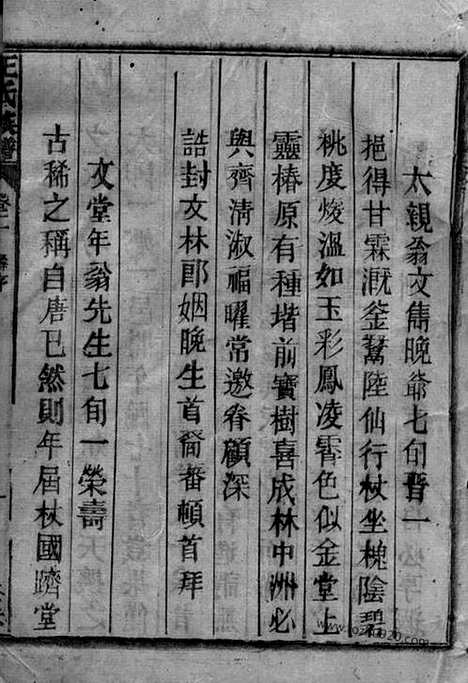 太親翁文雋晚爺七旬晋一
挹得甘霖溉釜鬵陸仙行杖坐槐陰碧
桃度燠溫如玉彩鳳凌霄色似金堂上
靈椿原有種堦前寶樹喜成林中洲必
與齊清淑福曜常邀眷顧深
誥封文林郎姻晚生首薗番頓首拜
文堂年翁先生七旬一榮壽
古稀之稱自唐已然則年屆杖國躋堂
王氏族譜
卷一